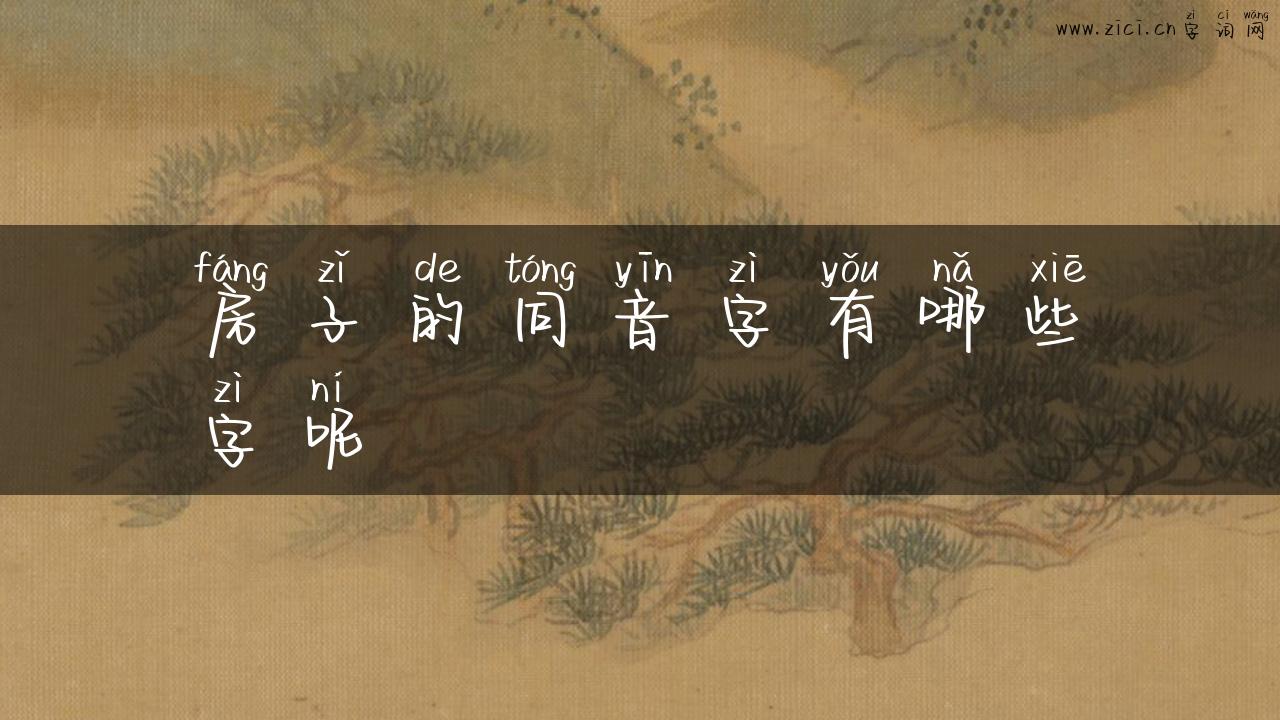 zì cí wǎng
www.zici.cn 字词网
fáng zǐ de tóng yīn zì yǒu nǎ xiē
房子的同音字有哪些
zì ní
字呢